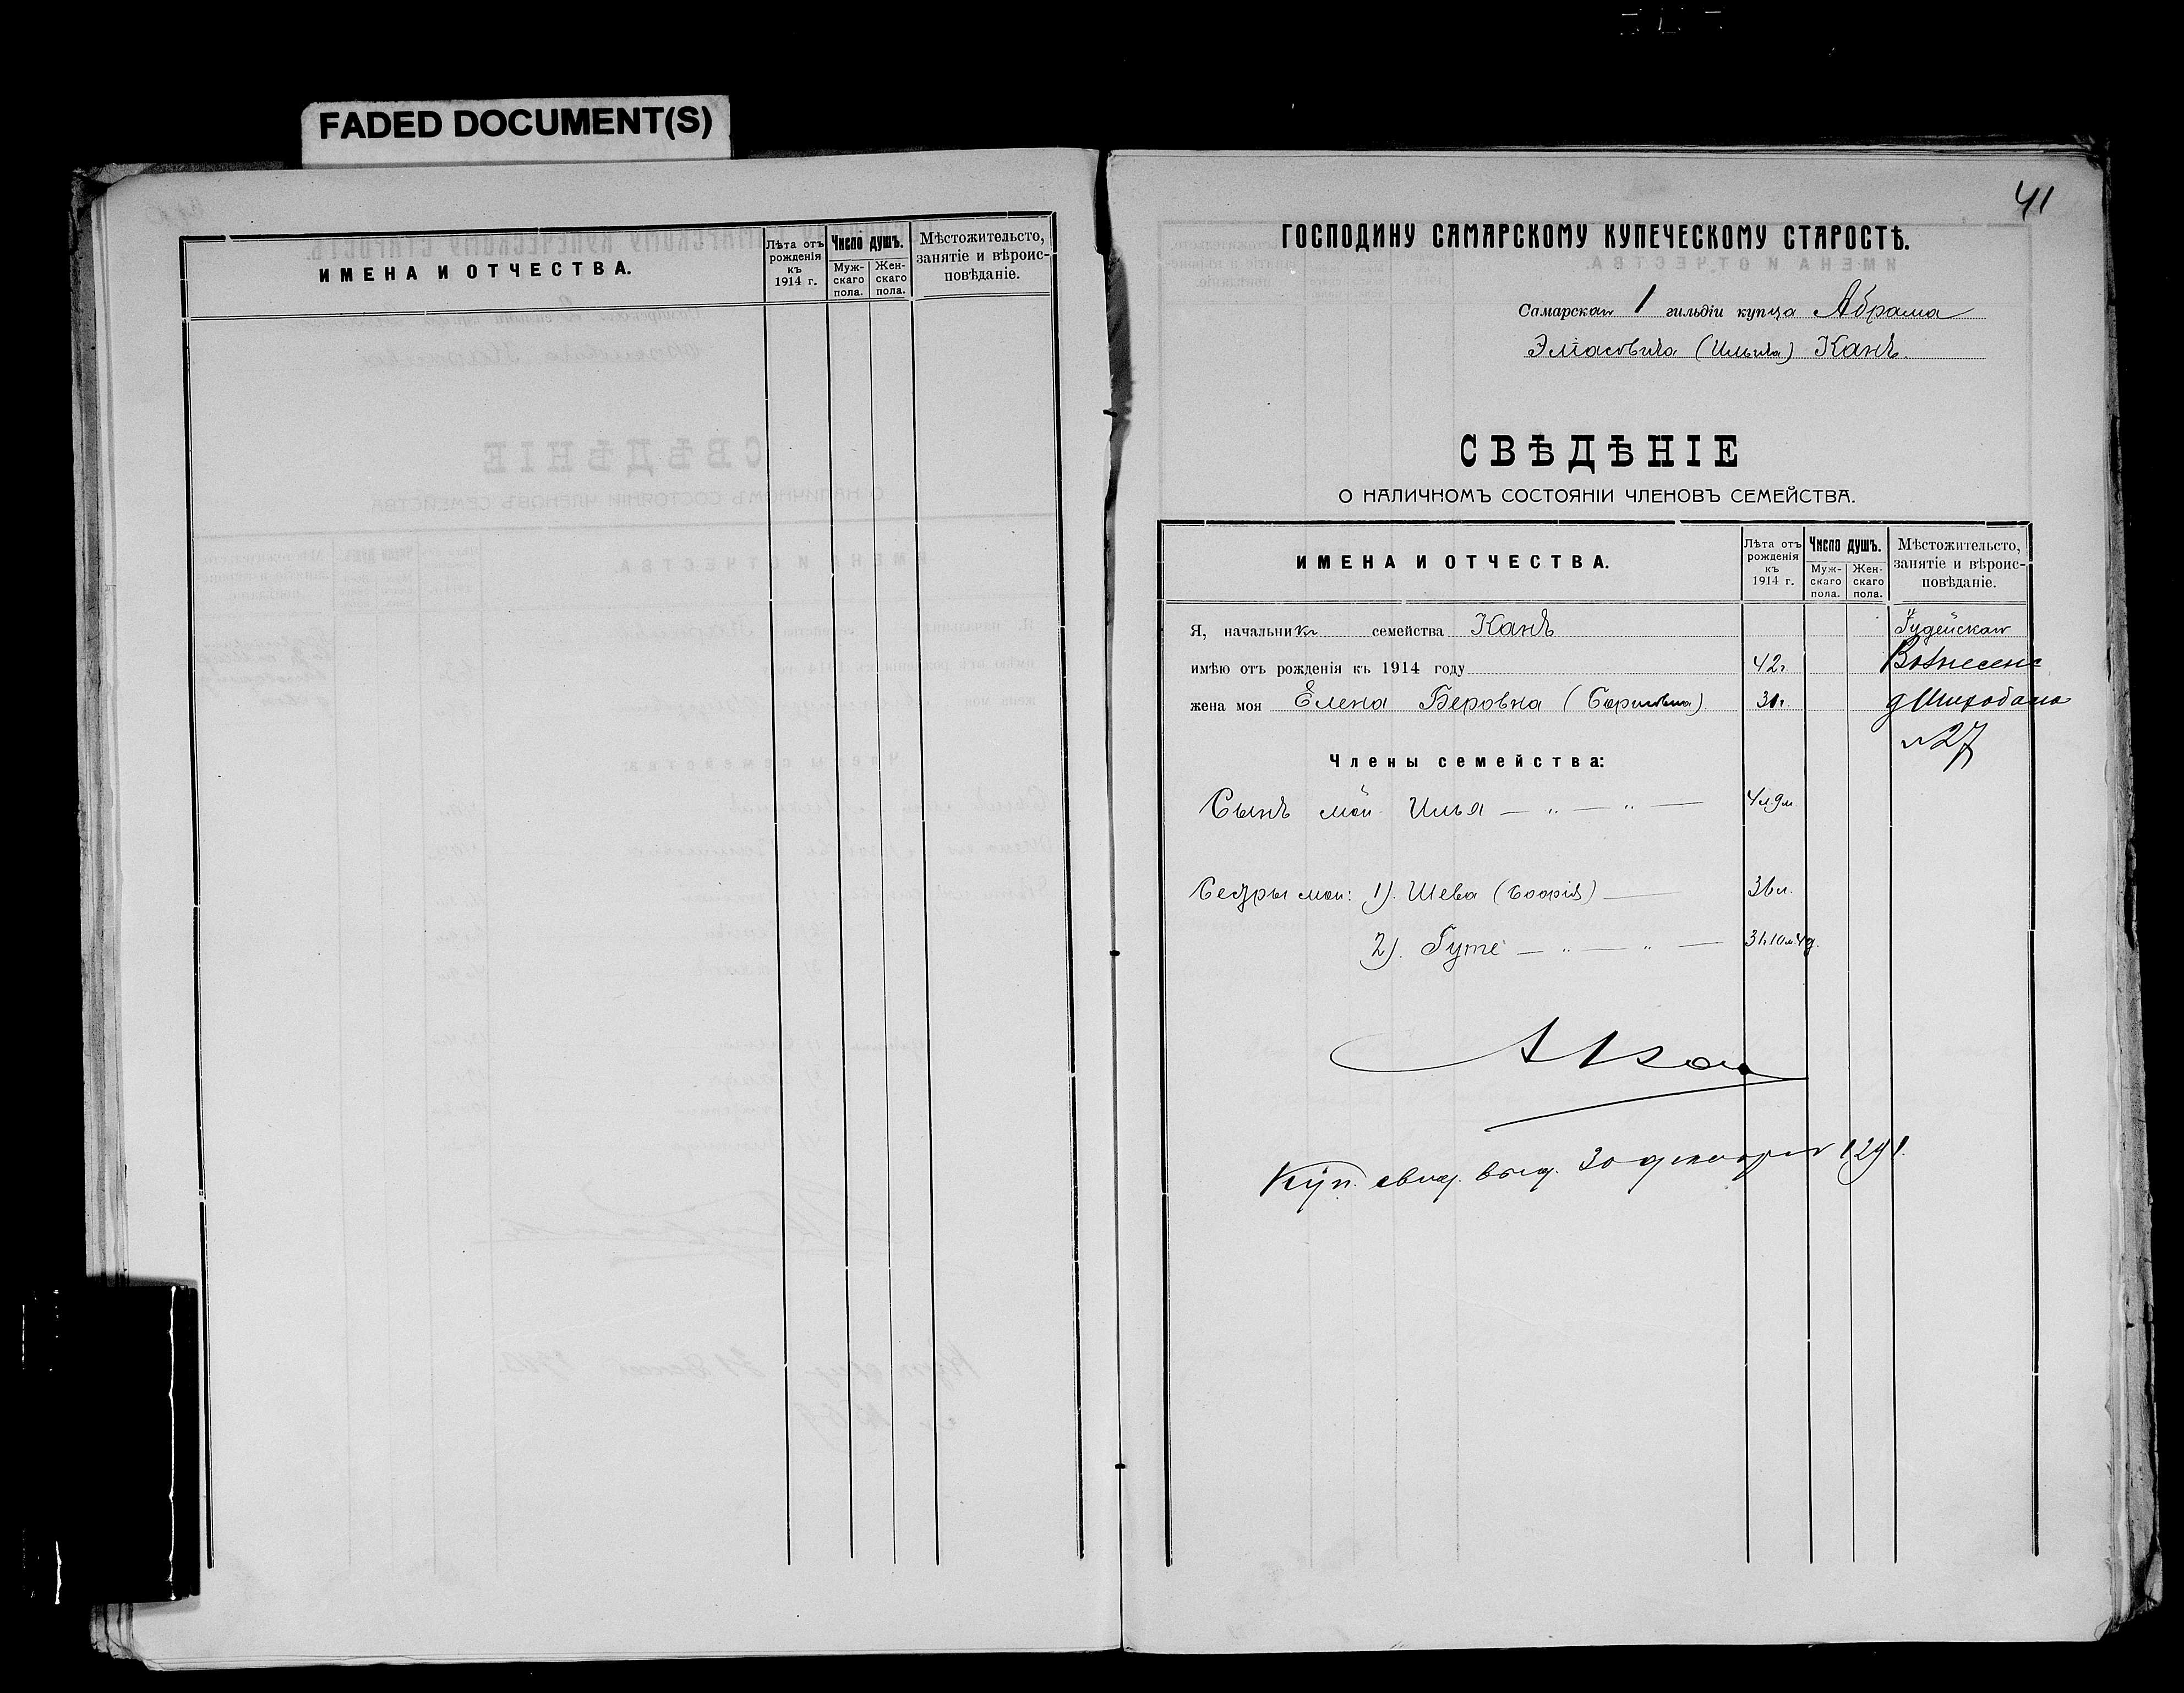 FADED DOCUMENT(S)
ИМЕНА И ОТЧЕСТВА.
Лѣта отъ рожденія къ 1914 г.
Число душъ.
Муж-скаго пола.
Жен-скаго пола.
Мѣстожительсто, занятіе и вѣроис-повѣданіе.
41
ГОСПОДИНУ САМАРСКОМУ КУПЕЧЕСКОМУ СТАРОСТѢ.
Самарскаго 1 гильдіи купца Абрама
Эліасовича (Ильича) Канъ.
СВѢДѢНІЕ
О НАЛИЧНОМЪ СОСТОЯНІИ ЧЛЕНОВЪ СЕМЕЙСТВА.
ИМЕНА И ОТЧЕСТВА.
Лѣта отъ рожденія къ 1914 г.
Число душъ.
Муж-скаго пола.
Жен-скаго пола.
Мѣстожительсто, занятіе и вѣроис-повѣданіе.
Я, начальникъ семейства Канъ Іудейская
имѣю отъ рожденія къ 1914 году 42 г. Вознесенс
жена моя Елена Беровна (Борисовна) 31 г. д Шихобалова
№ 27
Члены семейства:
Сынъ мой Илья — „ — „ — 4 л. 9 м.
Сестры мои: 1). Шева (Софія) — 36 л.
2). Гуте — „ — „ — 31 л. 10 м. 4 д.
А Кан
Куп. свид. выд. 30 декабря